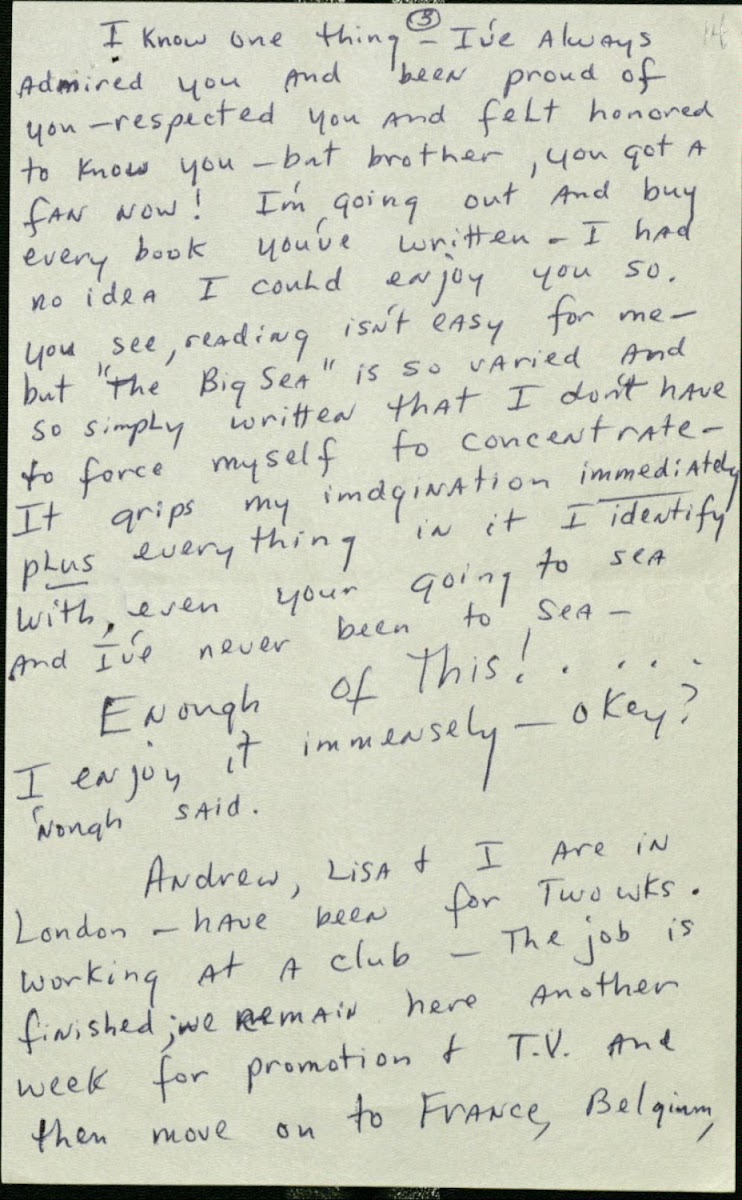 ③
I know one thing – I've always
admired you and been proud of
you – respected you and felt honored
to know you – but brother, you got a
fan now! I'm going out and buy
every book you've written – I had
no idea I could enjoy you so.
you see, reading isn't easy for me –
but "The Big Sea" is so varied and
so simply written that I don't have
to force myself to concentrate –
It grips my imagination immediately
plus everything in it I identify
with, even your going to sea
and I've never been to sea –
Enough of this! . . . .
I enjoy it immensely – okey?
'Nough said.
Andrew, Lisa & I are in
London – have been for Two wks.
working at a club – The job is
finished; we remain here another
week for promotion & T.V. and
then move on to France, Belgium,